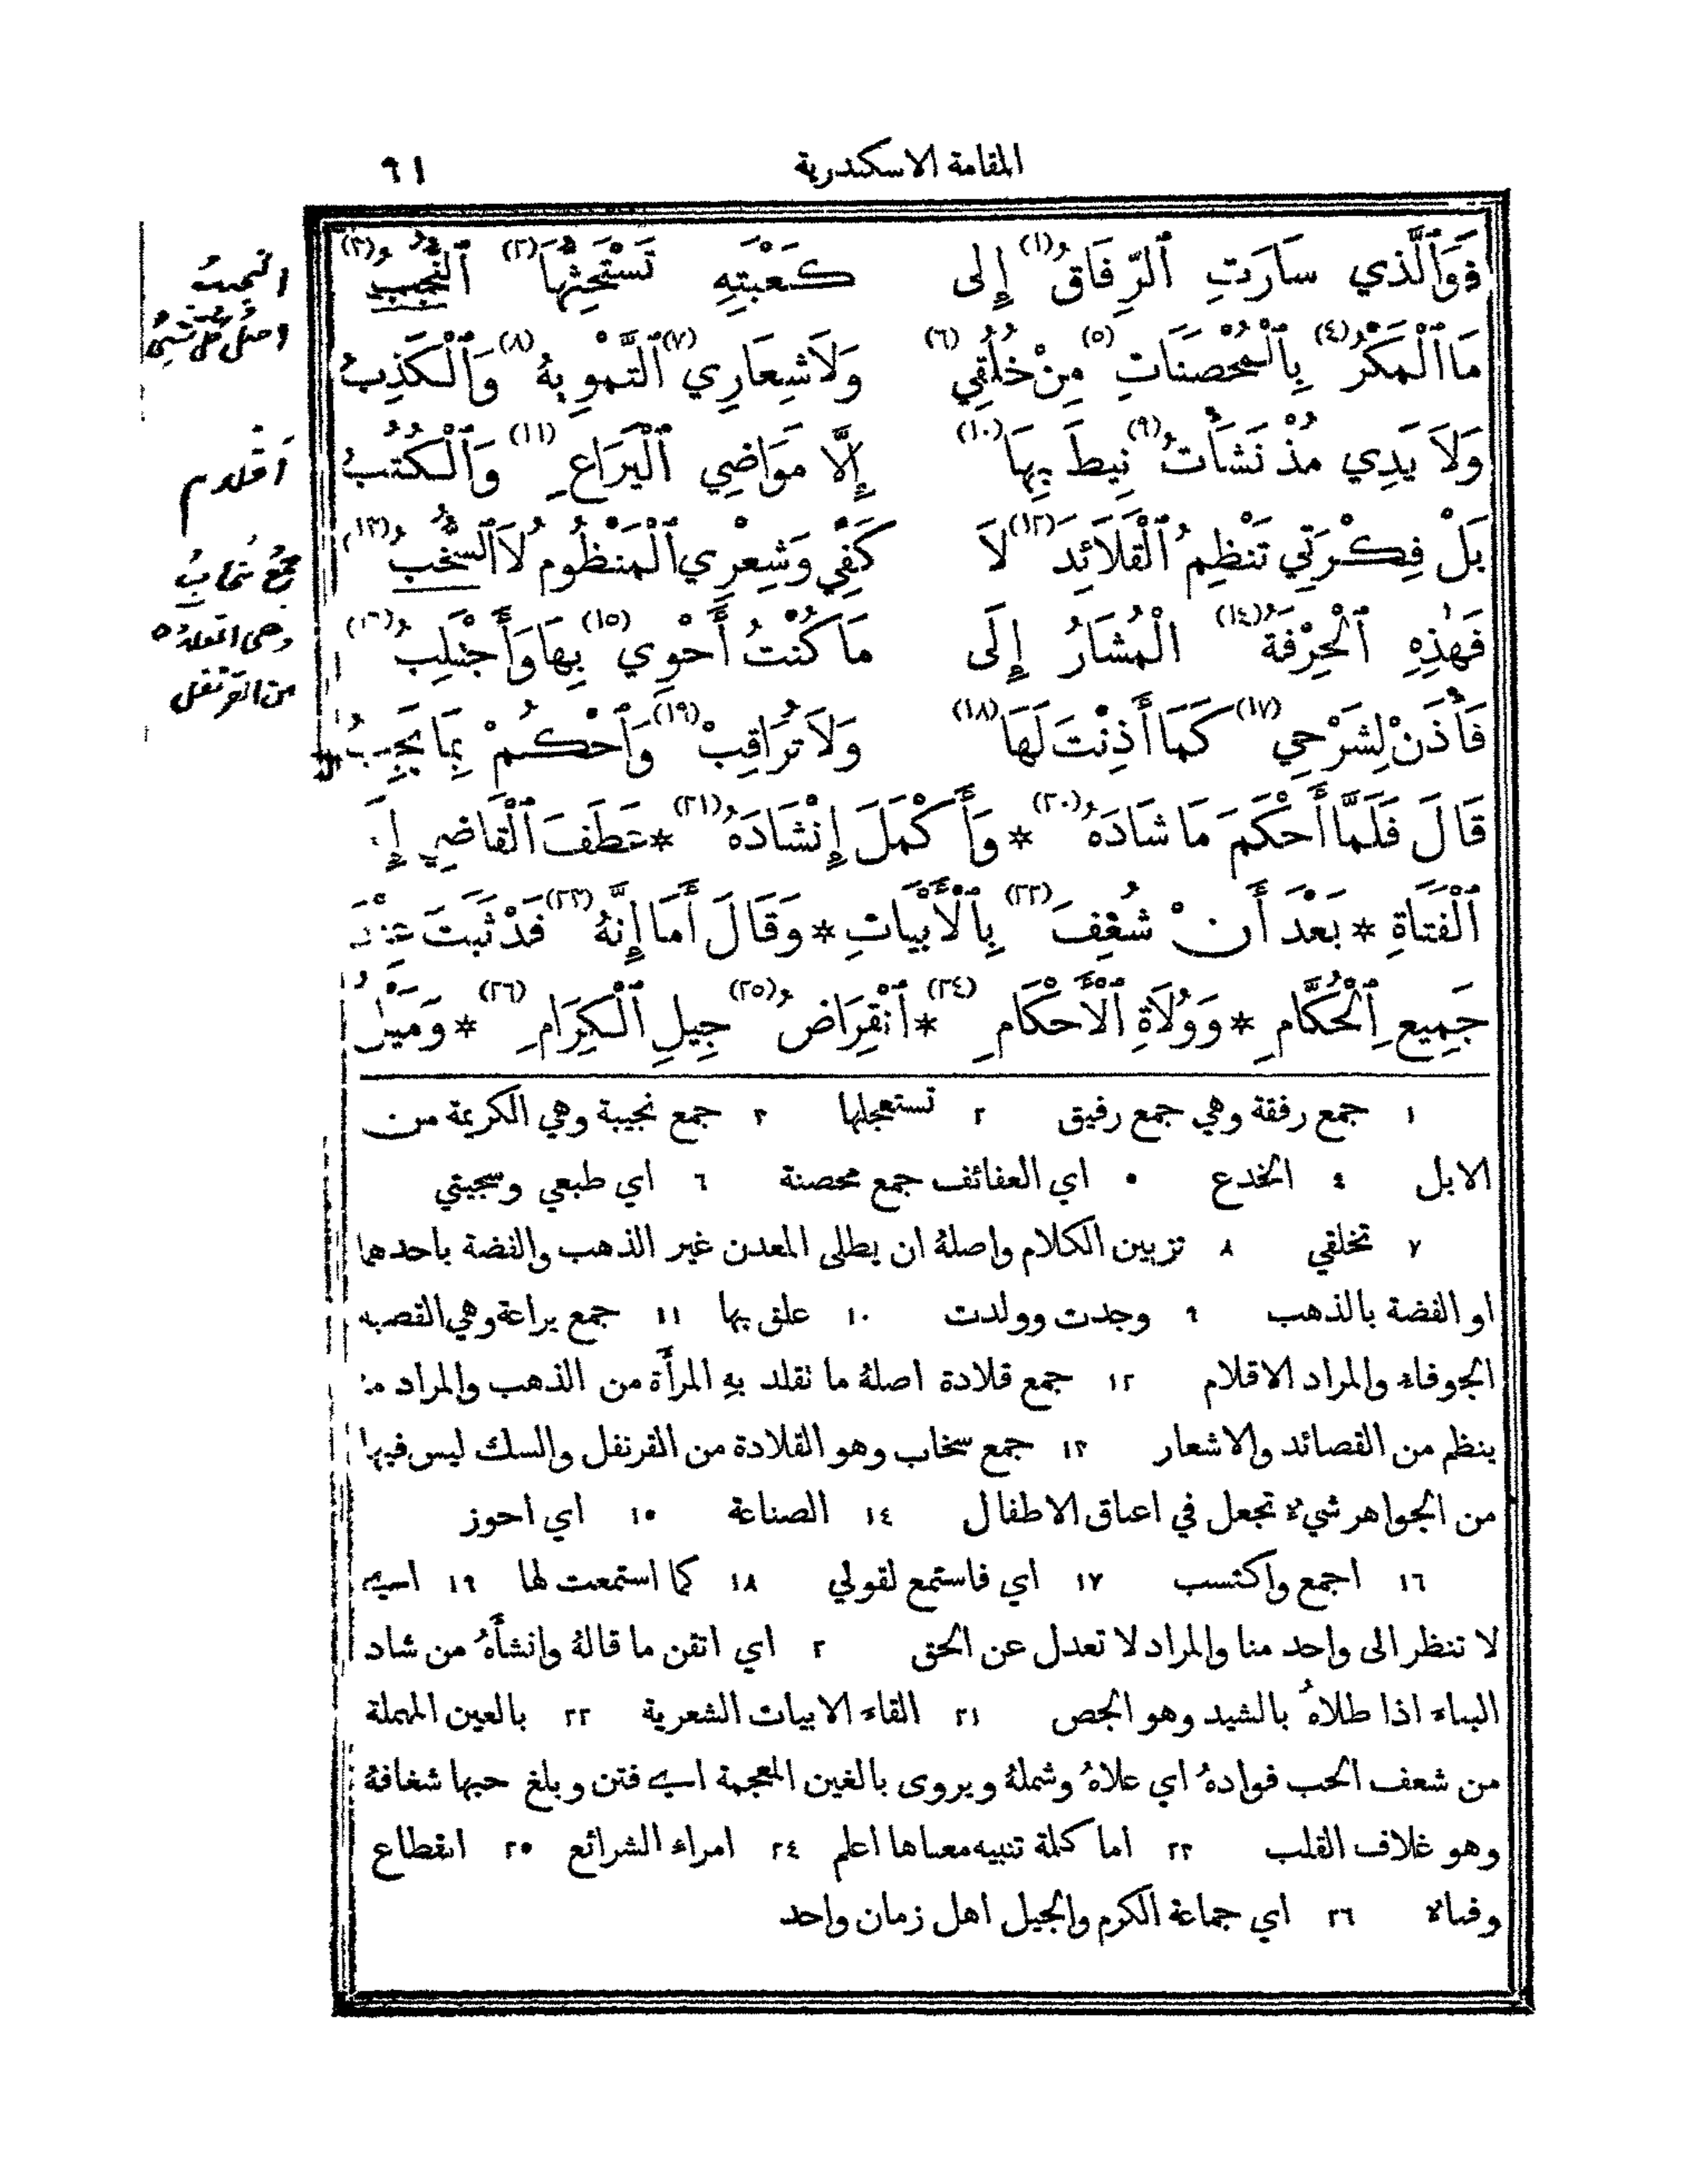 المقامة الاسكندرية ٦١
فَوَٱلَّذي سارَتِ ٱلرِّفَاقُ (١) إِلى كَعْبَتِهِ تَسْتَحِثُّهَا (٢) ٱلنُّجُبُ (٣)
مَا ٱلْمَكْرُ (٤) بِٱلْمُحْصَنَاتِ (٥) مِنْ خُلُقِي (٦) وَلَا شِعَارِي (٧) ٱلتَّمْوِيهُ (٨) وَٱلْكَذِبُ
وَلَا يَدِي مُذْ نَشَأْتُ (٩) نِيطَ بِهَا (١٠) إِلَّا مَوَاضِي ٱلْيَرَاعِ (١١) وَٱلْكُتُبُ
بَلْ فِكْرَتِي تَنْظِمُ ٱلْقَلَائِدَ (١٢) لَا كَفِّي وَشِعْرِي ٱلْمَنْظُومُ لَا ٱلسُّخُبُ (١٣)
فَهٰذِهِ ٱلْحِرْفَةُ (١٤) الْمُشَارُ إِلَى مَا كُنْتُ أَحْوِي (١٥) بِهَا وَأَجْتَلِبُ (١٦)
فَأْذَنْ لِشَرْحِي (١٧) كَمَا أَذِنْتَ لَهَا (١٨) وَلَا تُرَاقِبْ (١٩) وَٱحْكُمْ بِمَا يَجِبُ
قَالَ فَلَمَّا أَحْكَمَ مَا شَادَهُ (٢٠) * وَأَكْمَلَ إِنْشَادَهُ (٢١) * عَطَفَ ٱلْقَاضِي
ٱلْفَتَاةِ * بَعْدَ أَنْ شُغِفَ (٢٢) بِٱلْأَبْيَاتِ * وَقَالَ أَمَا إِنَّهُ (٢٣) قَدْ ثَبَتَ عِنْدَ
جَمِيعِ ٱلْحُكَّامِ * وَوُلَاةِ ٱلْأَحْكَامِ (٢٤) * ٱنْقِرَاضُ (٢٥) جِيلِ ٱلْكِرَامِ (٢٦) * وَمَيْلُ
١ جمع رفقة وهي جمع رفيق ٢ تستعجلها ٣ جمع نجيبة وهي الكريمة من
الابل ٤ الخدع ٥ اي العفائف جمع محصنة ٦ اي طبعي وسجيتي
٧ تخلقي ٨ تزيين الكلام واصلهُ ان يطلى المعدن غير الذهب والفضة باحدهما
او الفضة بالذهب ٩ وجدت وولدت ١٠ علق بها ١١ جمع يراعة وهي القصبه
الجوفاء والمراد الاقلام ١٢ جمع قلادة اصلهُ ما تقلد بهِ المرأة من الذهب والمراد ما
ينظم من القصائد والاشعار ١٣ جمع سخاب وهو القلادة من القرنفل والسك ليس فيها
من الجواهر شيءٌ تجعل في اعناق الاطفال ١٤ الصناعة ١٥ اي احوز
١٦ اجمع واكتسب ١٧ اي فاستمع لقولي ١٨ كما استمعت لها ١٩ اي
لا تنظر الى واحد منا والمراد لا تعدل عن الحق ٢ اي اتقن ما قالهُ وانشأهُ من شاد
البناء اذا طلاهُ بالشيد وهو الجص ٢١ القاء الابيات الشعرية ٢٢ بالعين المهملة
من شعف الحب فوادهُ اي علاهُ وشملهُ ويروى بالغين المعجمة اي فتن وبلغ حبها شغافهُ
وهو غلاف القلب ٢٣ اما كلمة تنبيه معناها اعلم ٢٤ امراء الشرائع ٢٥ انقطاع
وفناء ٢٦ اي جماعة الكرم والجيل اهل زمان واحد
اقلام
جمع سخاب
وهي القلادة
من القرنفل